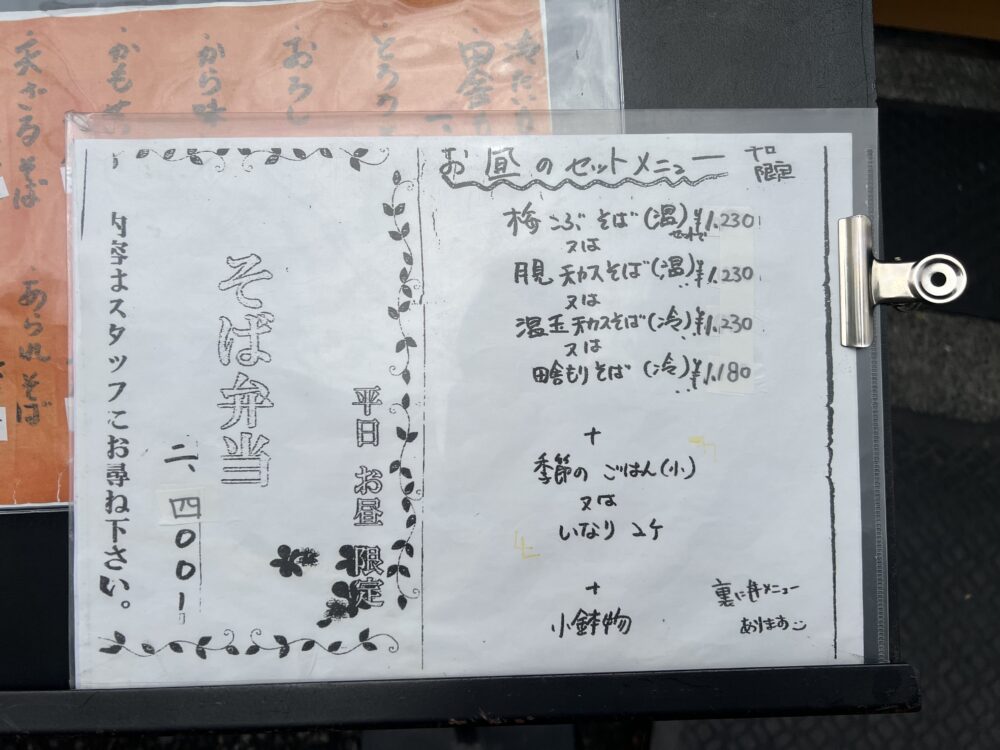 天ざるそば
から味
おろし
田舎
あられそば
お昼のセットメニュー
平日
限定
梅こぶそば(温)¥1.230
セットで
又は
月見天カスそば(温)¥1.230
又は
温玉天カスそば(冷)¥1.230
又は
田舎もりそば(冷)¥1.180
+
季節のごはん(小)
又は
いなり2ケ
+
小鉢物
裏に丼メニュー
あります
平日 お昼 限定
そば弁当
二、四〇〇ー
内容はスタッフにお尋ね下さい。